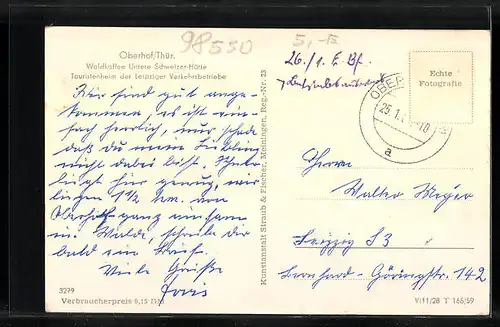 98550
5,-
Oberhof/Thür.
Waldkaffee Unsere Schweizer-Hütte
Touristenheim der Leipziger Verkehrsbetriebe
Wir sind gut ange-
kommen, es ist ein-
fach herrlich, nur schade
daß du mein Liebling
nicht dabei bist. Schnee
liegt hier genug, wir
liegen 1½ km. von
Oberhof ganz einsam
im Walde, schreibe dir
bald ein Brief.
Viele Grüße
26./1. E. Bf.
Echte
Fotografie
OBER
25.1. -10
a
Herrn
Walter Meyer
Leipzig S3
Bernhard-Göringstr. 142
Kunstanstalt Straub & Fischer, Meiningen, Reg.-Nr. 23
3279
Verbraucherpreis 0,15 DM
V/11/28 T 166/59